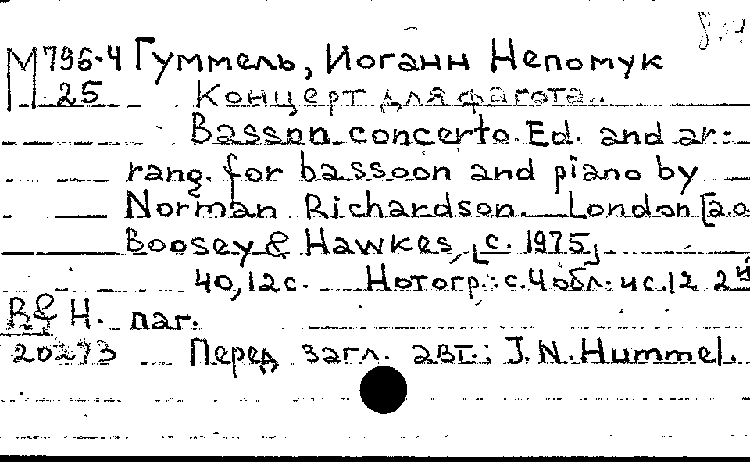 М 796-4 Гуммель, Иоганн Непомук
25 Концерт для фагота..
Basson concerto. Ed. and ar-
rang. for bassoon and piano by
Norman Richardson. London [a.o.
Boosey & Hawkes, [c. 1975]
40,12с. Нотогр.: с.4 обл. и с.12 2й
B & H. паг.
20273 Перед загл. авт.: J.N. Hummel.